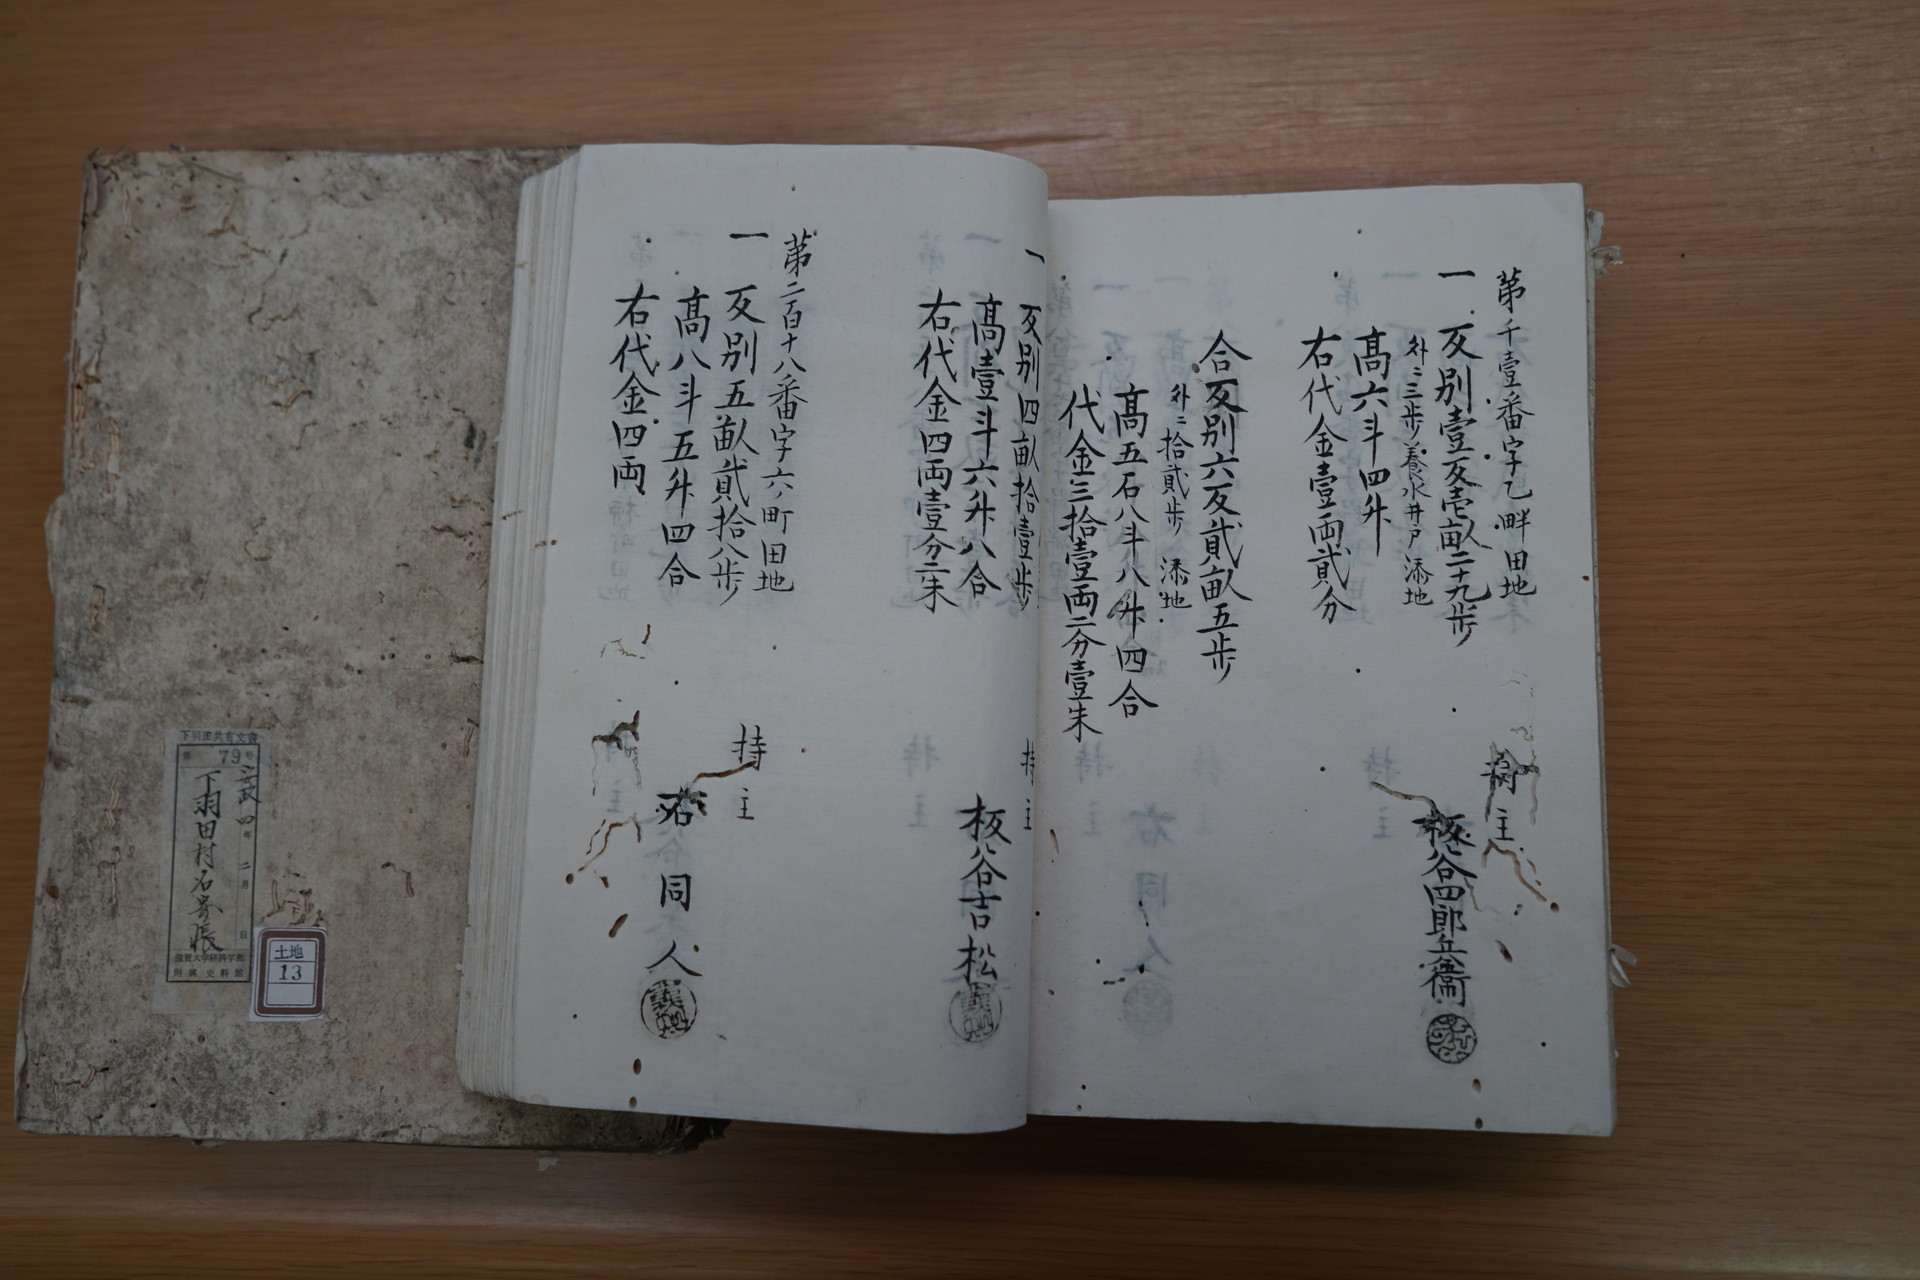 第千壹番字乙畔田地
一 反別壹反壱畝二十九歩
外ニ三歩養水井戸添地
高六斗四升
右代金壹両貳分
持主
板谷四郎兵衞
合反別六反貳畝五歩
外ニ拾貳歩 添地
高五石八斗八升四合
代金三拾壹両二分壹朱
一 反別四畝拾壹歩
高壹斗六升八合
右代金四両壹分二朱
持主
板谷吉松
第二百十八番字六ノ町田地
一 反別五畝貳拾八歩
高八斗五升四合
右代金四両
持主
右同人
下羽田共有文書
第 79号
安政四年 二月 日
下羽田村名寄帳
滋賀大学経済学部
附属史料館
土地
13